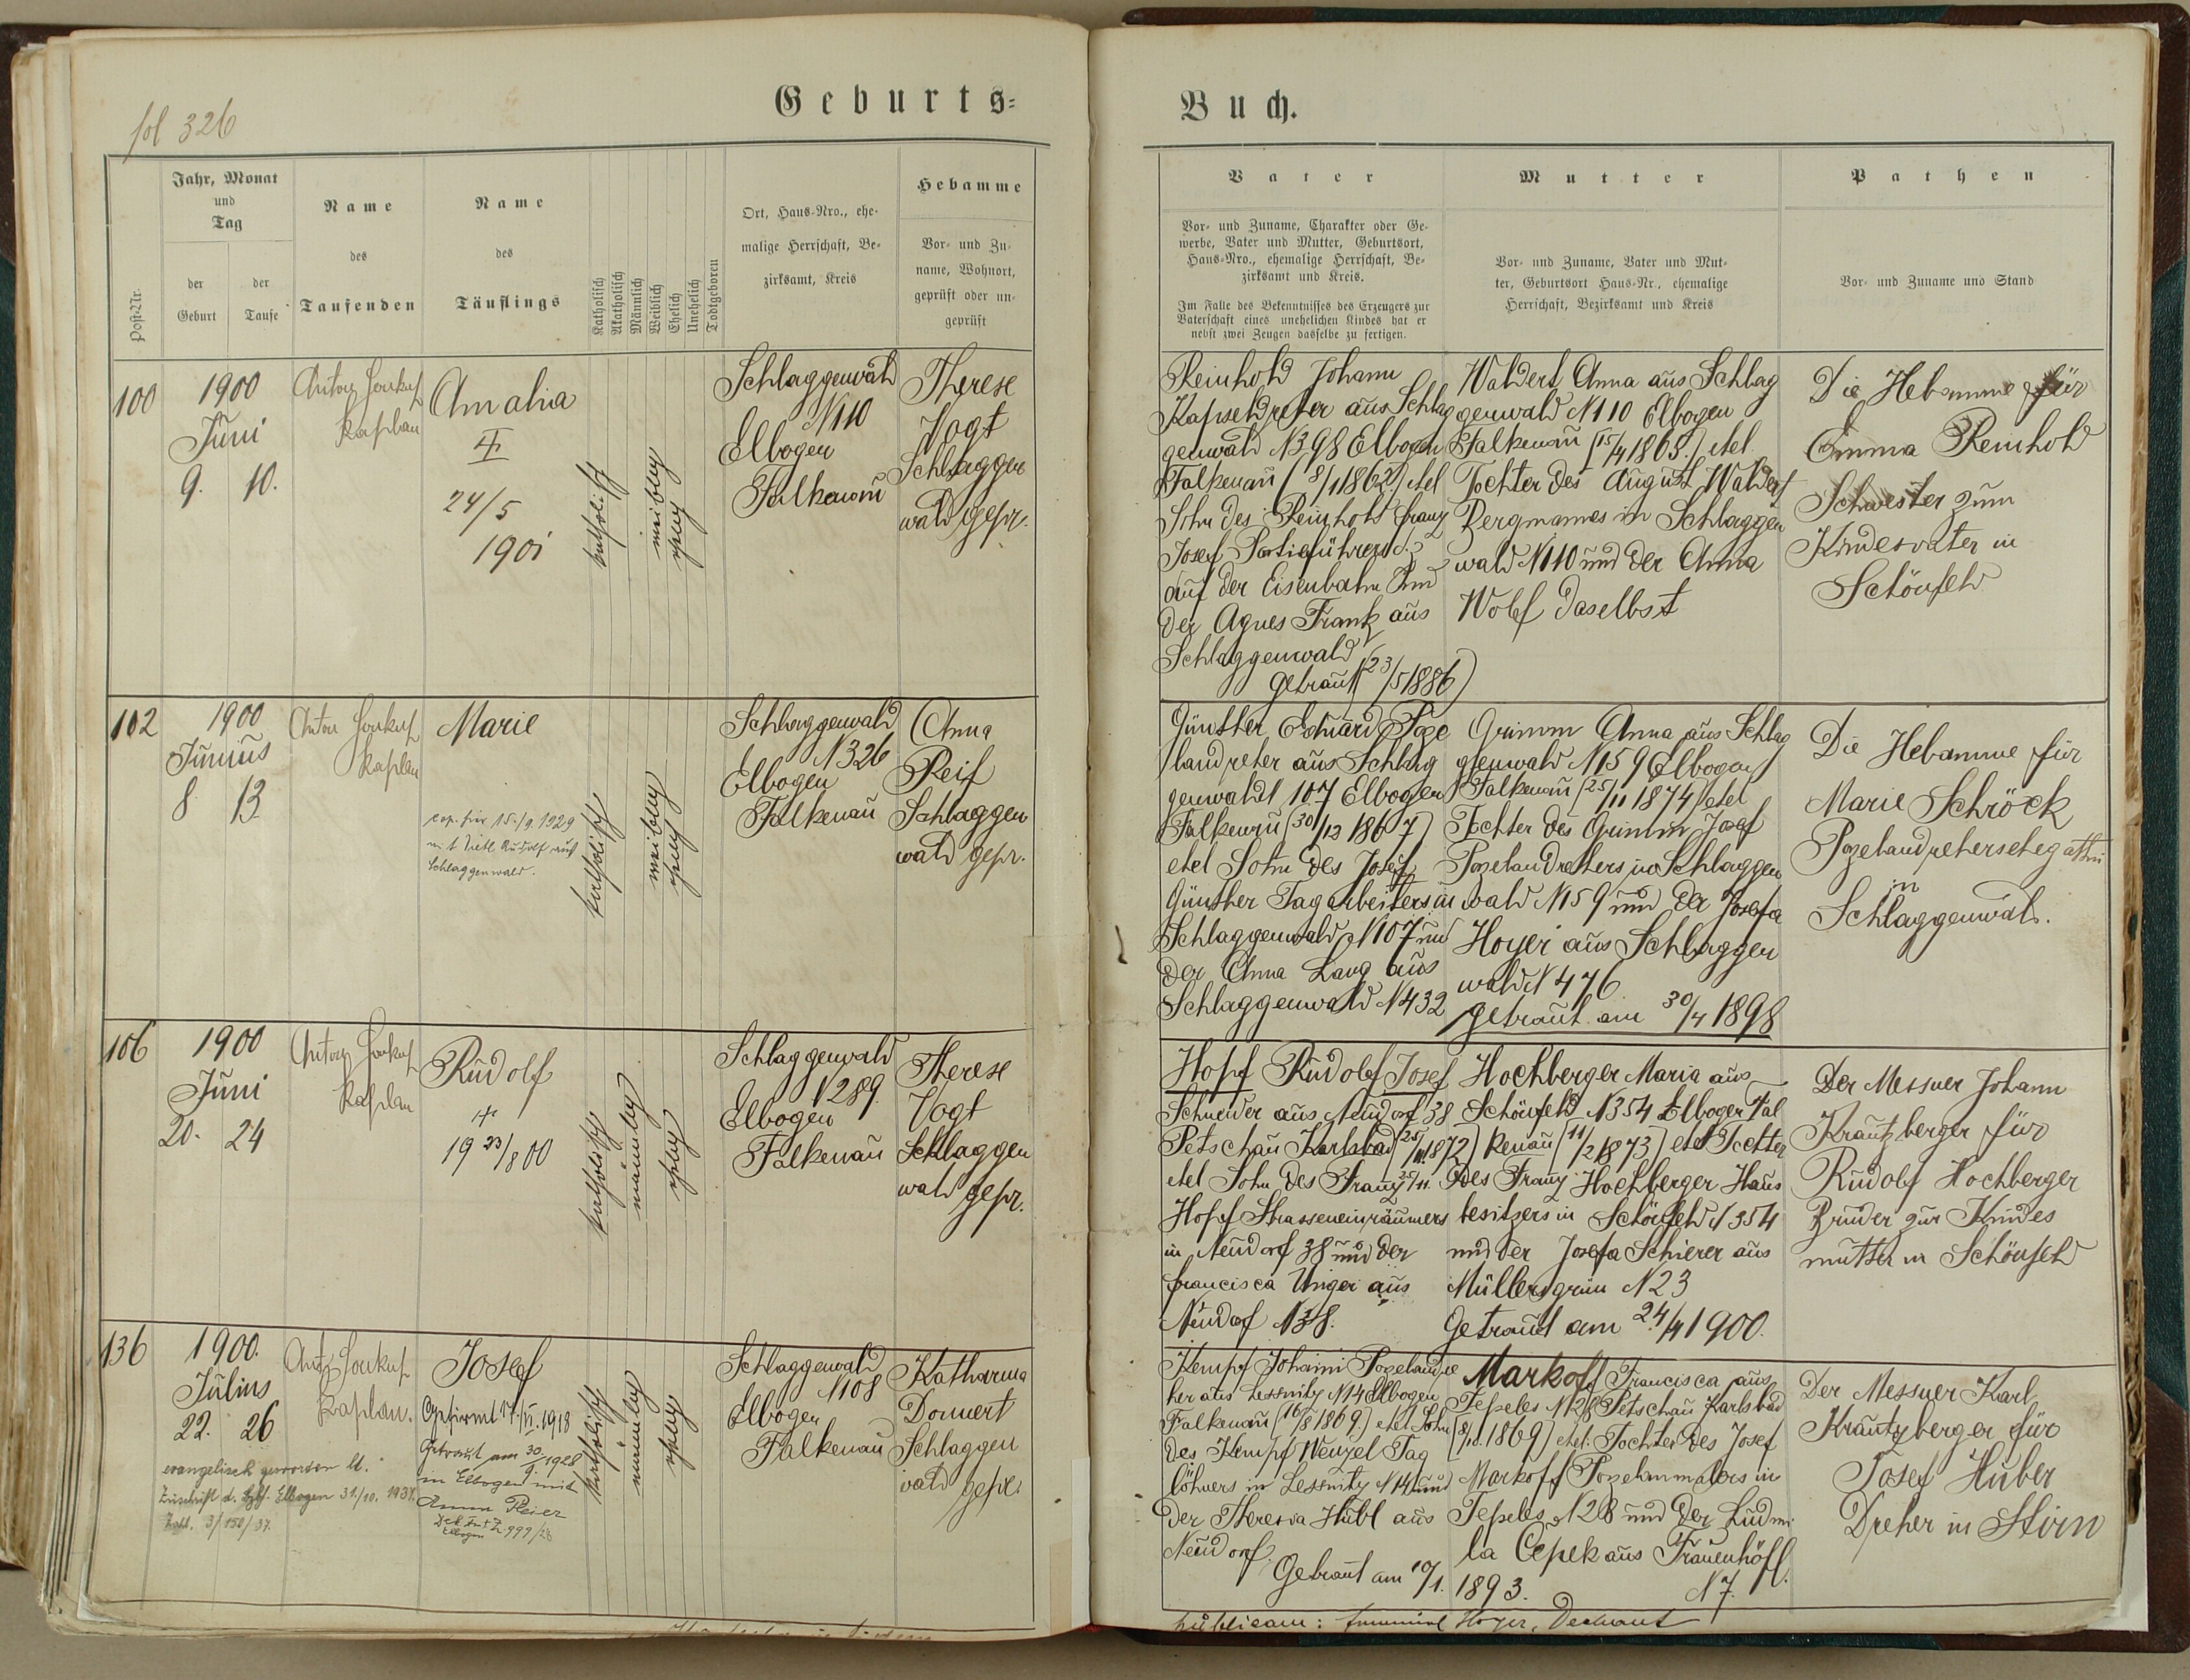 fol 326
Geburts=
Post-Nr.
Jahr, Monat
und
Tag
der
Geburt
der
Taufe
Name
des
Taufenden
Name
des
Täuflings
Katholisch
Akatholisch
Männlich
Weiblich
Ehelich
Unehelich
Todtgeboren
Ort, Haus-Nro., ehe-
malige Herrschaft, Be-
zirksamt, Kreis
Hebamme
Vor- und Zu-
name, Wohnort,
geprüft oder un-
geprüft
100
1900
Juni
9. 10.
Anton
Kaplan
Amalia
24/5
1901
katholisch
weiblich
ehelich
Schlaggenwald
N110
Elbogen
Falkenau
Therese
Vogt
Schlaggen
wald gepr.
102
1900
Junius
8 13
Anton
Kaplan
Marie
cop. hier 15./9. 1929
mit Dietl Rudolf aus
Schlaggenwald.
katholisch
weiblich
ehelich
Schlaggenwald
N326
Elbogen
Falkenau
Anna
Reif
Schlaggen
wald gepr.
106
1900
Juni
20. 24
Anton
Kaplan
Rudolf
+
19 23/8 00
katholisch
männlich
ehelich
Schlaggenwald
N289.
Elbogen
Falkenau
Therese
Vogt
Schlaggen
wald gepr.
136
1900.
Julius
22. 26
evangelisch geworden lt.
Zuschrift d. Elbogen 31./10. 1937.
Zahl. 3/150/37.
Kaplan.
Josef
Gefirmt 17./VI. 1918
Getraut am 30/9 1928
in Elbogen mit
Anna
Elbogen Z. 999/28
katholisch
männlich
ehelich
Schlaggenwald
N108
Elbogen
Falkenau
Katharina
Donnert
Schlaggen
wald gepr.
Buch.
Vater
Vor- und Zuname, Charakter oder Ge-
werbe, Vater und Mutter, Geburtsort,
Haus-Nro., ehemalige Herrschaft, Be-
zirksamt und Kreis.
Im Falle des Bekenntnisses des Erzeugers zur
Vaterschaft eines unehelichen Kindes hat er
nebst zwei Zeugen dasselbe zu fertigen.
Mutter
Vor- und Zuname, Vater und Mut-
ter, Geburtsort Haus-Nr., ehemalige
Herrschaft, Bezirksamt und Kreis
Pathen
Vor- und Zuname und Stand
Reinhold Johann
Kapseldreher aus Schlag
genwald N398 Elbogen
Falkenau (8/1 1862) ehel
Sohn des Reinhold Franz
Josef Partieführers d.
auf der Eisenbahn und
der Agnes Frank aus
Schlaggenwald
getraut (23/5 1886)
Waldert Anna aus Schlag
genwald N110 Elbogen
Falkenau (15/4 1863.) ehel
Tochter des August Waldert
Bergmannes in Schlaggen
wald N110 und der Anna
Wolf daselbst
Die Hebamme für
Emma Reinhold
Schwester zum
Kindesvater in
Schönfeld
Günther Eduard Poze
landreher aus Schlag
genwald 107 Elbogen
Falkenau (30/12 1867)
ehel Sohn des Josef
Günther Tagarbeiters in
Schlaggenwald N107 und
der Anna Lang aus
Schlaggenwald N432
Grimm Anna aus Schlag
genwald N159 Elbogen
Falkenau (25/11 1874) ehel
Tochter des Grimm Josef
Pozelandrehers in Schlaggen
wald N159 und der Josefa
Hoyer aus Schlaggen
wald N476
getraut am 30/4 1898
Die Hebamme für
Marie Schröck
Pozelandrehersehegattin
in
Schlaggenwald.
Hopf Rudolf Josef
Schneider aus Neudorf 38
Petschau Karlsbad (25/11. 1872)
ehel Sohn des Franz 25/11.
Hopf Strasseneinräumers
in Neudorf 38 und der
Francisca Unger aus
Neudorf N38.
Hochberger Maria aus
Schönfeld N354 Elbogen Fal
kenau (11/2 1873) ehel Tochter
des Franz Hochberger Haus
besitzers in Schönfeld N354
und der Josefa Schierer aus
Müllersgrün N23
Getraut am 24./4 1900.
Der Messner Johann
Krautzberger für
Rudolf Hochberger
Bruder zur Kindes
mutter in Schönfeld
Kempf Johann Pozelandre
her aus Lessnitz N14 Elbogen
Falkenau (16/8 1869.) ehel Sohn
des Kempf Wenzel Tag
löhners in Lessnitz N14 und
der Theresia Hübl aus
Neudorf.
Getraut am 10/1. 1893.
Markoff Francisca aus
Tepeles N28 Petschau Karlsbad
(8/10. 1869) ehel. Tochter des Josef
Markoff Pozelanmalers in
Tepeles N28 und der Ludmi
la Cepek aus Frauenhöfl.
N7.
Der Messner Karl
Krautzberger für
Josef Huber
Dreher in Hirn
publicam: Hoyer, Dechant